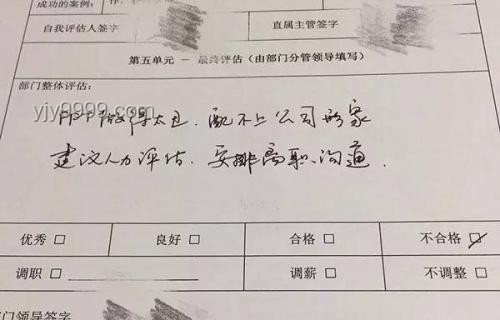 成功的案例：
自我评估人签字
直属主管签字
第五单元 － 最终评估（由部门分管领导填写）
部门整体评估：
做得太丑、配不上公司形象
建议人力评估，安排离职沟通.
yjy9999.com
优秀 □ 良好 □ 合格 □ 不合格 ☑
调职 □ 调薪 □ 不调整 □
部门领导签字